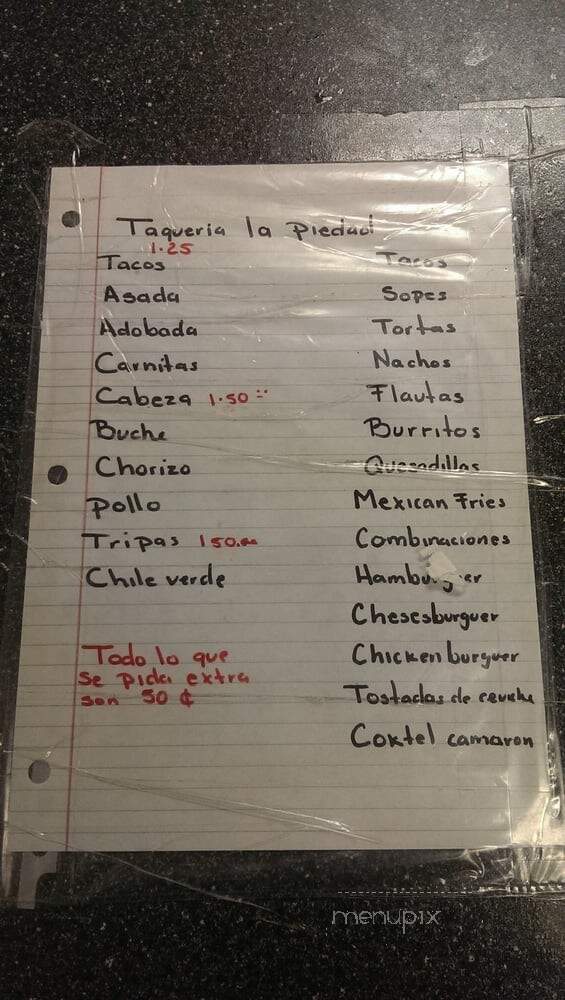 Taqueria la Piedad
1.25
Tacos
Asada
Adobada
Carnitas
Cabeza 1.50
Buche
Chorizo
Pollo
Tripas 150
Chile verde
Todo lo que
se pida extra
son 50 ¢
Tacos
Sopes
Tortas
Nachos
Flautas
Burritos
Quesadillas
Mexican Fries
Combinaciones
Hamburger
Chesesburguer
Chicken burguer
Tostadas de ceviche
Coktel camaron
menupix